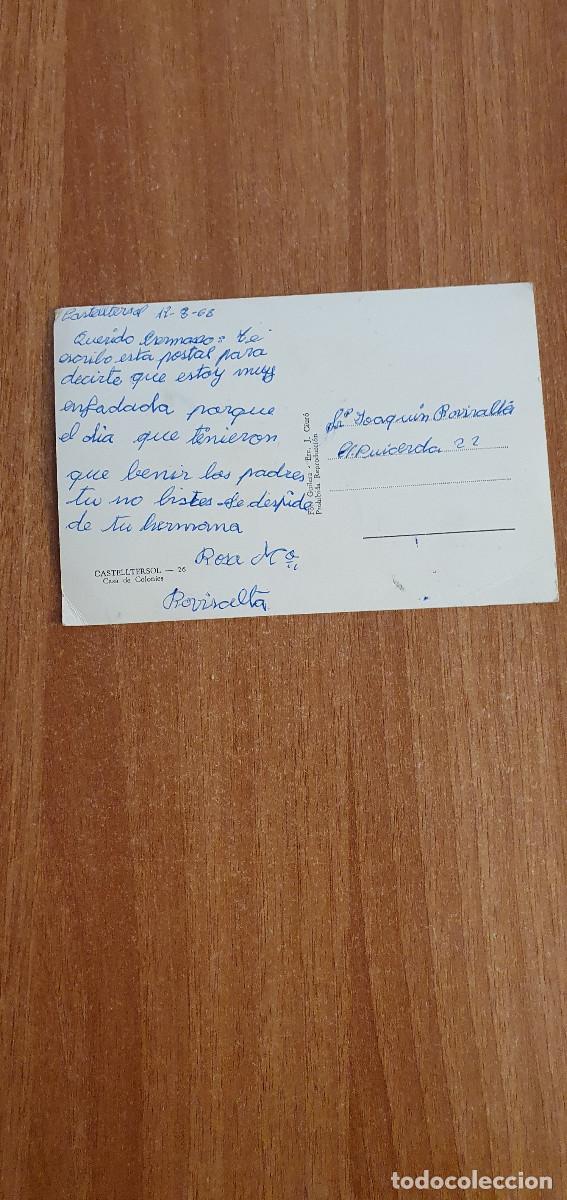 Castelltersol 17-8-68
Querido hermano: Te
escribo esta postal para
decirte que estoy muy
enfadada porque
el dia que tenieron
que benir los padres
tu no bistes. Se despide
de tu hermana
Rosa Mª
Rovisalta
CASTELLTERSOL — 26
Casa de Colonies
Prohibida Reproducción
Joaquín Rovisaltá
22
todocoleccion